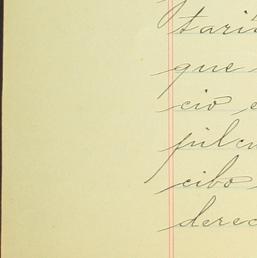 tari
que
cio e
cibo
derec